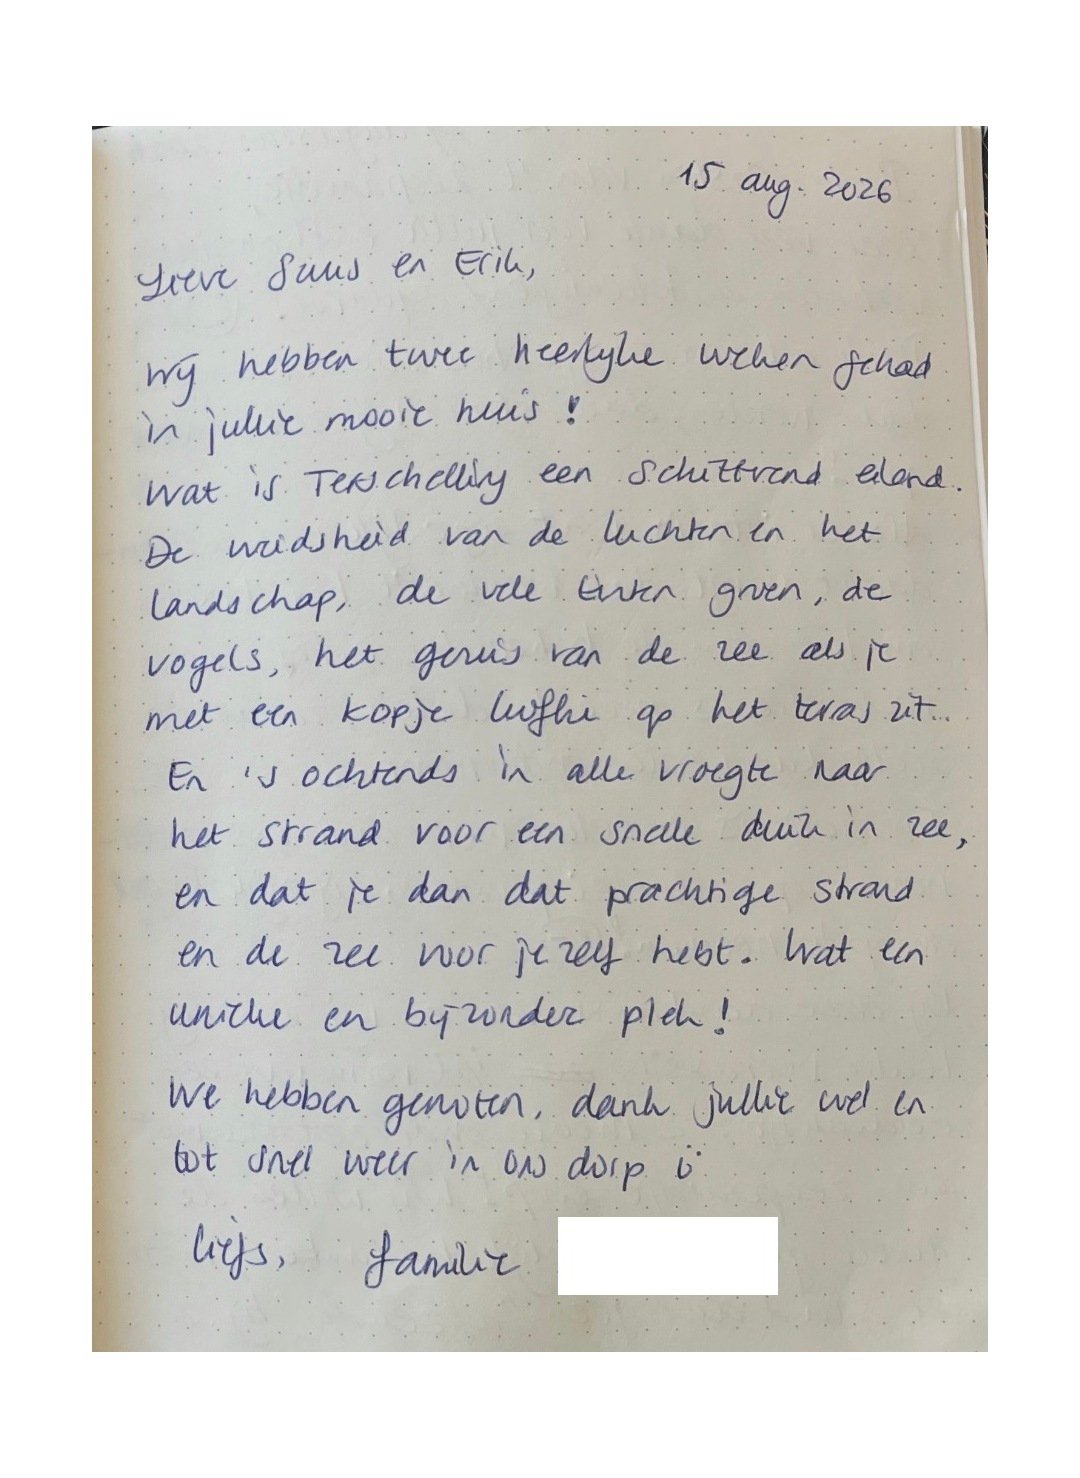 15 aug. 2026
Lieve Suus en Erik,
Wij hebben twee heerlijke weken gehad
in jullie mooie huis!
Wat is Terschelling een schitterend eiland.
De weidsheid van de luchten en het
landschap, de vele tinten groen, de
vogels, het geruis van de zee als je
met een kopje koffie op het terras zit..
En 's ochtends in alle vroegte naar
het strand voor een snelle duik in zee,
en dat je dan dat prachtige strand
en de zee voor jezelf hebt. Wat een
unieke en bijzonder plek!
We hebben genoten, dank jullie wel en
tot snel weer in ons dorp ü
Liefs, familie